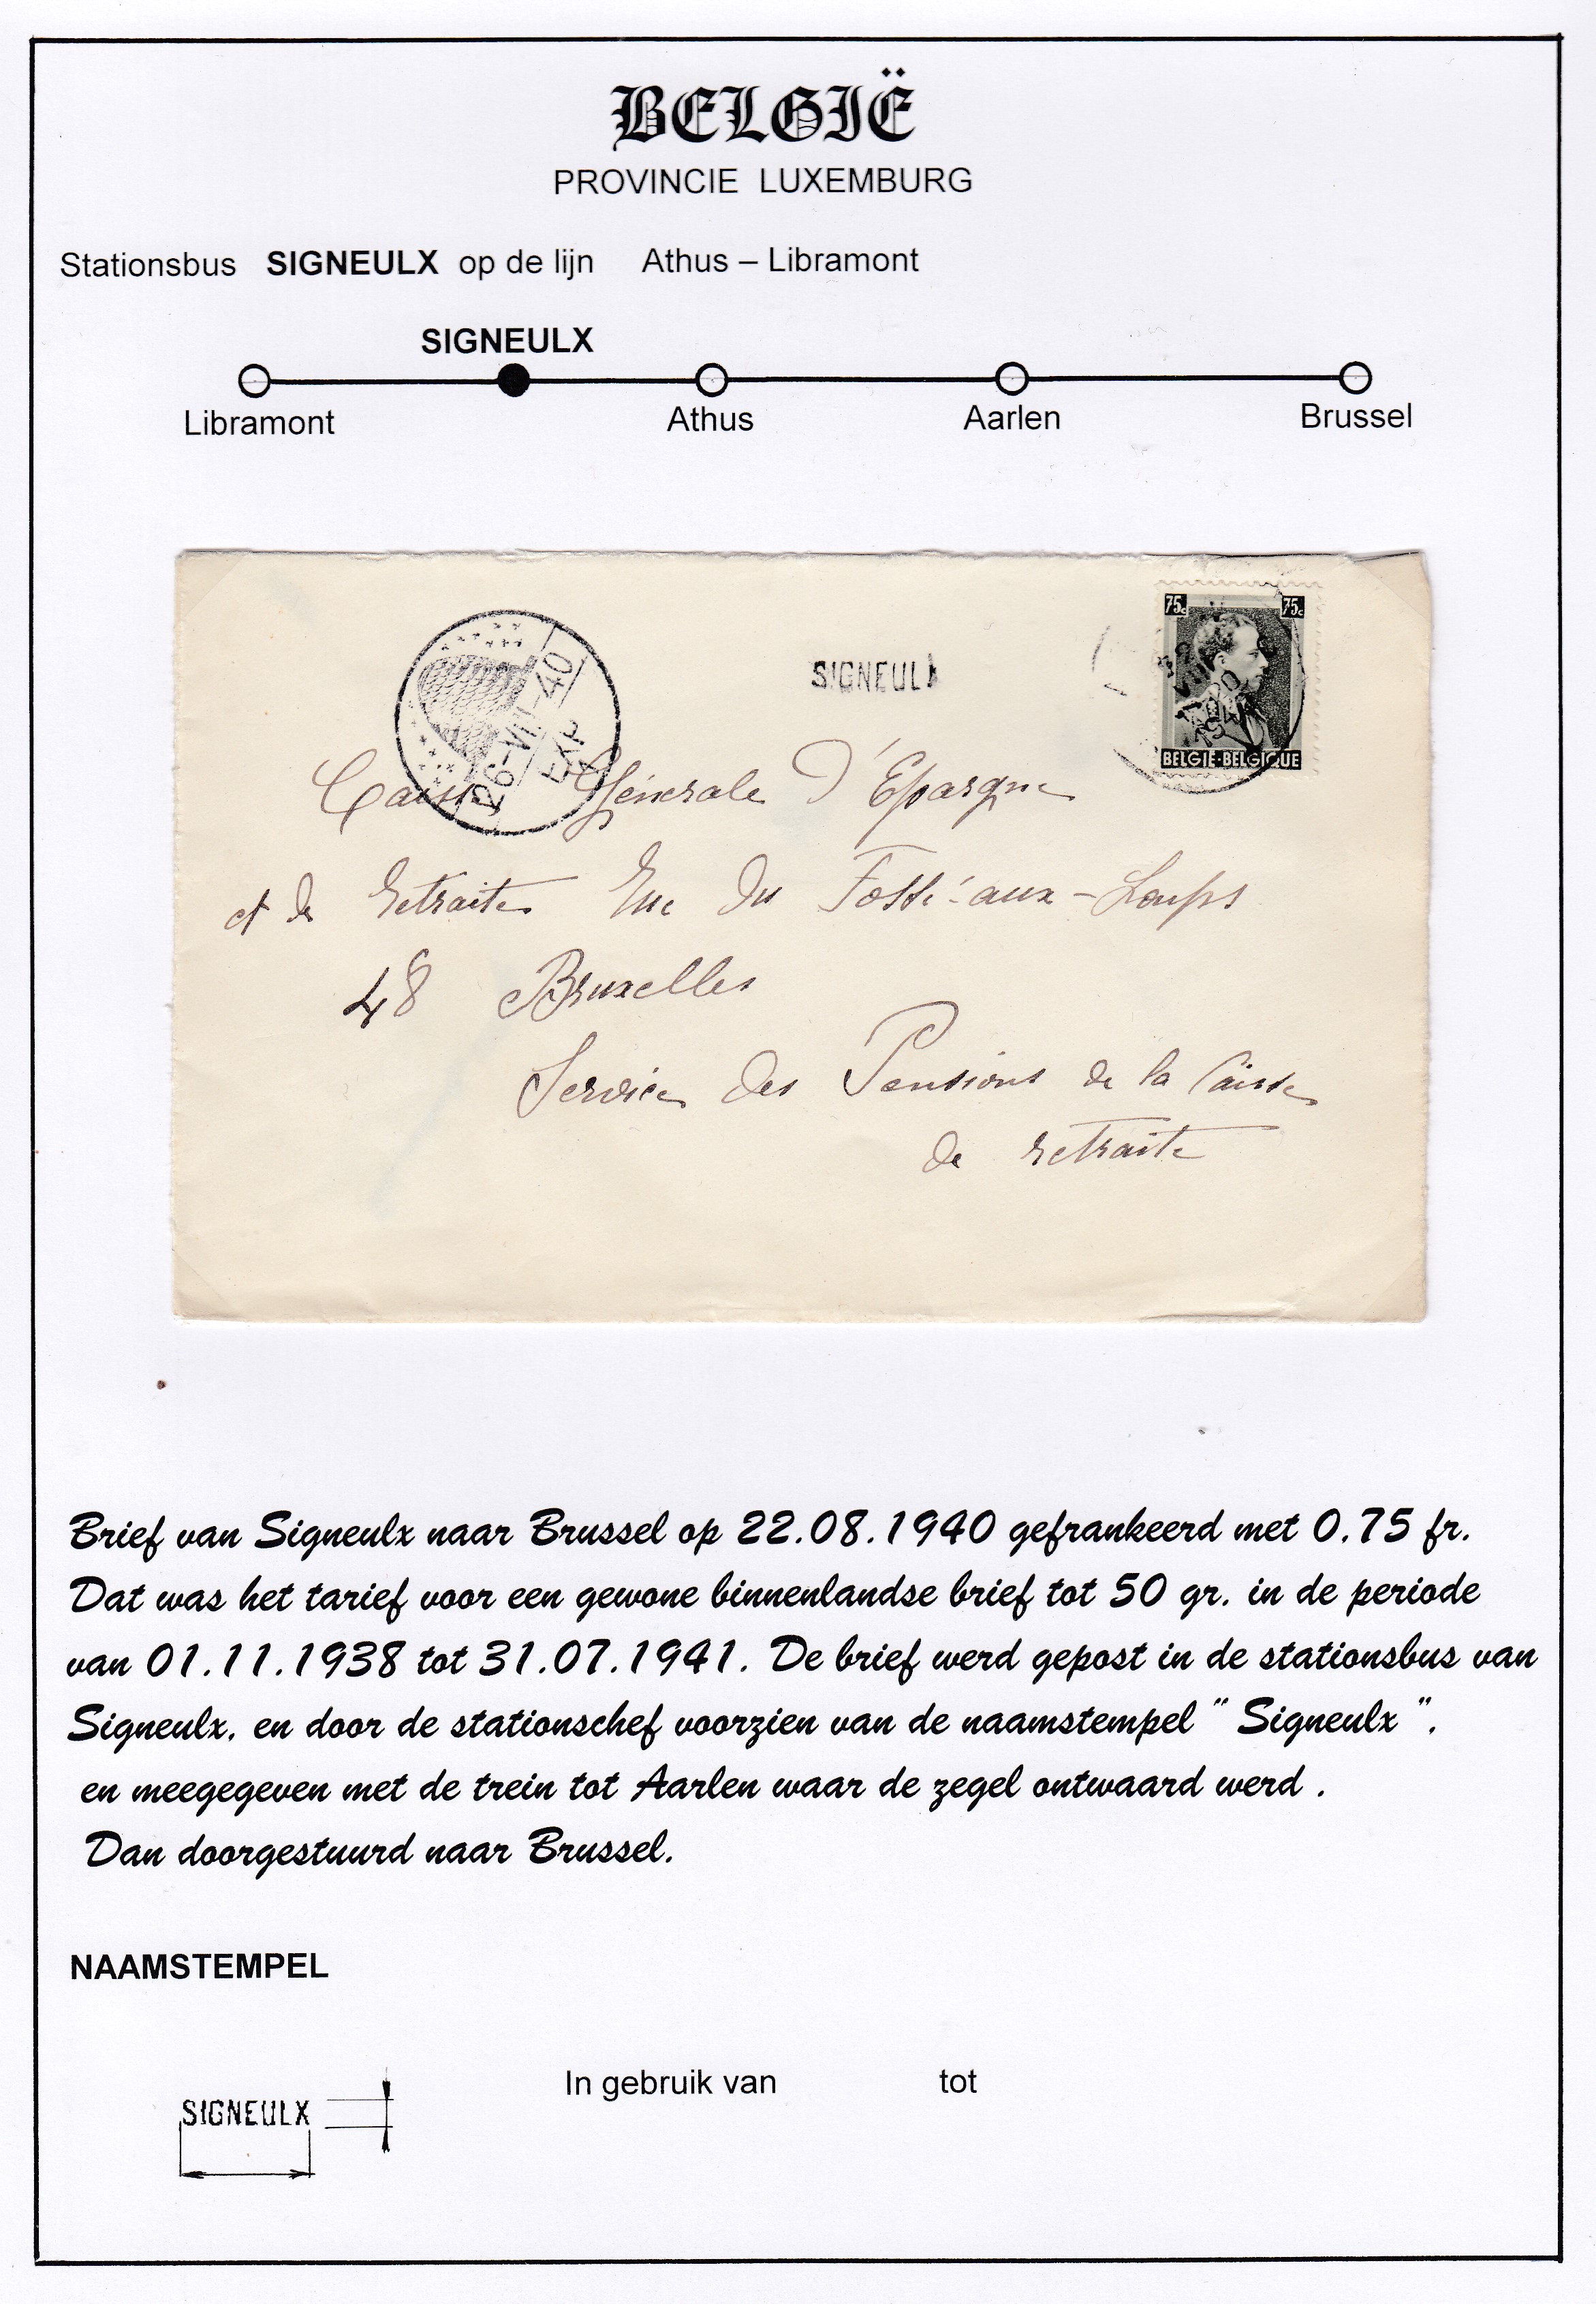 BELGIË
PROVINCIE LUXEMBURG
Stationsbus SIGNEULX op de lijn Athus – Libramont
SIGNEULX
Libramont Athus Aarlen Brussel
26-VIII-40
SIGNEULX
75c 75c
1940
BELGIE-BELGIQUE
Caisse Générale d'Epargne
et de Retraite Rue du Fossé-aux-Loups
48 Bruxelles
Service des Pensions de la Caisse
de retraite
Brief van Signeulx naar Brussel op 22.08.1940 gefrankeerd met 0.75 fr.
Dat was het tarief voor een gewone binnenlandse brief tot 50 gr. in de periode
van 01.11.1938 tot 31.07.1941. De brief werd gepost in de stationsbus van
Signeulx. en door de stationschef voorzien van de naamstempel " Signeulx ".
en meegegeven met de trein tot Aarlen waar de zegel ontwaard werd .
Dan doorgestuurd naar Brussel.
NAAMSTEMPEL
In gebruik van tot
SIGNEULX